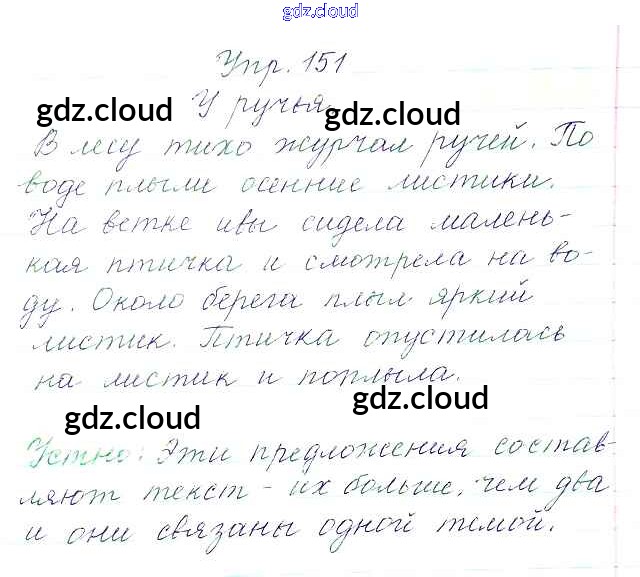 gdz.cloud
Упр. 151
gdz.cloud
У ручья
gdz.cloud
В лесу тихо журчал ручей. По
воде плыли осенние листики.
На ветке ивы сидела малень-
кая птичка и смотрела на во-
ду. Около берега плыл яркий
листик. Птичка опустилась
на листик и поплыла.
gdz.cloud
gdz.cloud
Устно: Эти предложения состав-
ляют текст - их больше, чем два
и они связаны одной темой.